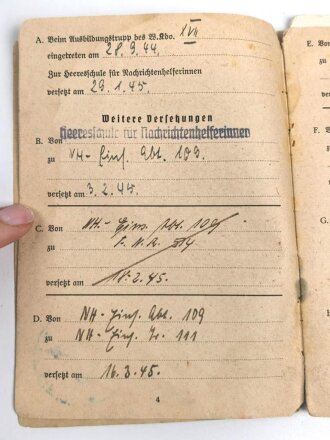 A. Beim Ausbildungstrupp des W. Kdo. IVa
eingetreten am 28. 9. 44.
Zur Heeresschule für Nachrichtenhelferinnen
versetzt am 29. 1. 45.
Weitere Versetzungen
B. Von Heeresschule für Nachrichtenhelferinnen
zu NH-Eins. Abt. 109.
versetzt am 3. 2. 45.
C. Von NH-Eins. Abt. 109
zu
versetzt am 18. 2. 45.
D. Von NH-Eins. Abt. 109
zu NH-Eins. Zg. 111
versetzt am 16. 3. 45.
4
E.
F.
G.